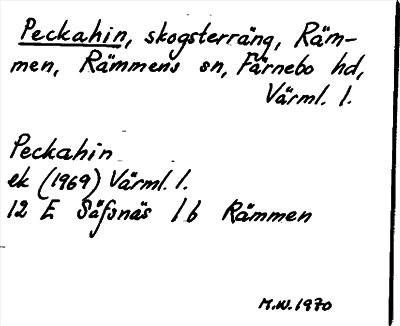 Peckahin, skogsterräng, Räm-
men, Rämmens sn, Färnebo hd,
Värml. l.
Peckahin
ek (1969) Värml. l.
12 E Säfsnäs 1 b Rämmen
M.W. 1970